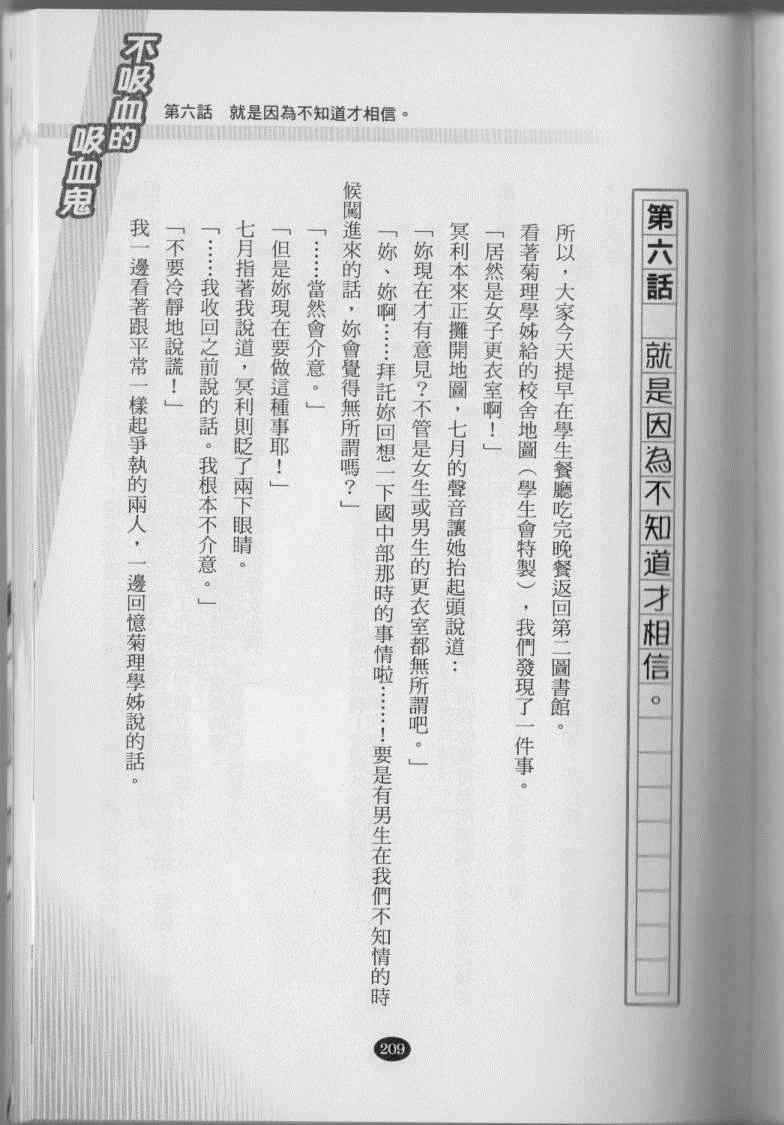 不吸血的
吸血鬼
第六話　就是因為不知道才相信。
第六話　就是因為不知道才相信。
所以，大家今天提早在學生餐廳吃完晚餐返回第二圖書館。
看著菊理學姊給的校舍地圖（學生會特製），我們發現了一件事。
「居然是女子更衣室啊！」
冥利本來正攤開地圖，七月的聲音讓她抬起頭說道：
「妳現在才有意見？不管是女生或男生的更衣室都無所謂吧。」
「妳、妳啊……拜託妳回想一下國中部那時的事情啦……！要是有男生在我們不知情的時
候闖進來的話，妳會覺得無所謂嗎？」
「……當然會介意。」
「但是妳現在要做這種事耶！」
七月指著我說道，冥利則眨了兩下眼睛。
「……我收回之前說的話。我根本不介意。」
「不要冷靜地說謊！」
我一邊看著跟平常一樣起爭執的兩人，一邊回憶菊理學姊說的話。
209